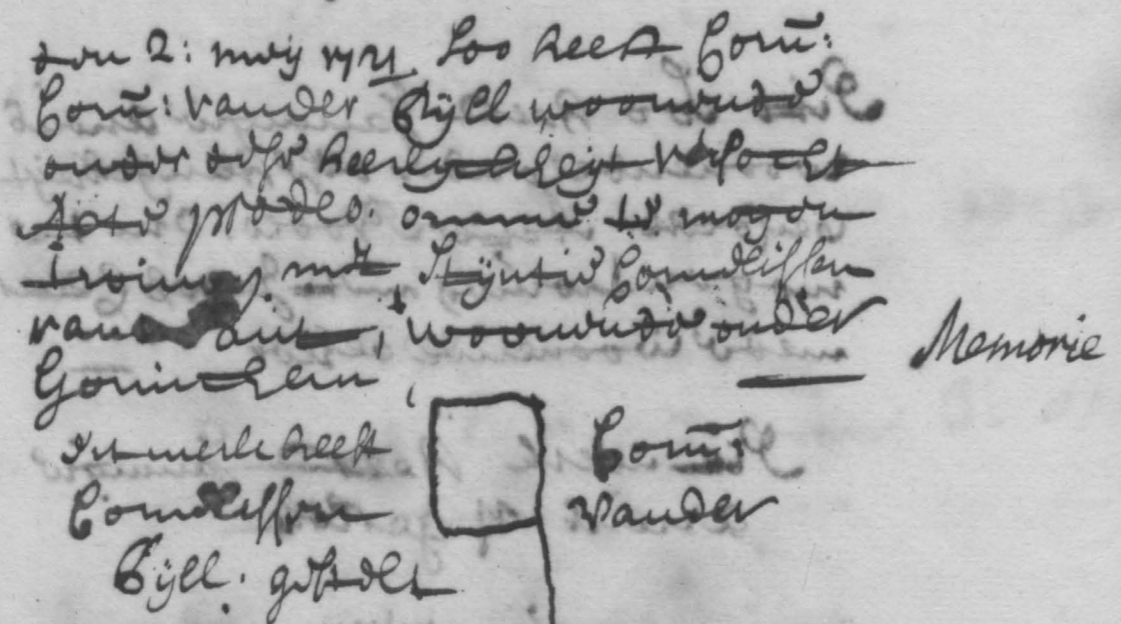 den 2: meij 1721 Soo heeft Corn:
Corn: vander Bijll woonende
onder dese heerlijckheijt versocht
Acte pro deo. omme te mogen
trouwen met Stijntie Cornelissen
van, woonende onder
Gorinchem, Memorie
dit merk heeft Corn:
Cornelissen vander
Bijll. gestelt